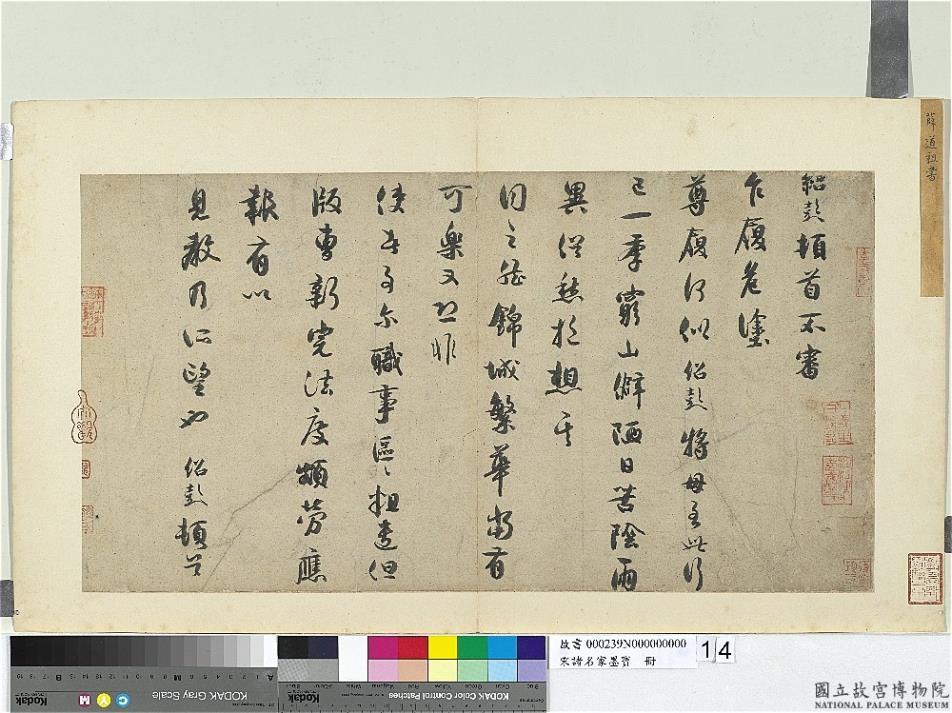 紹彭頓首不審
乍履危塗
尊履何似紹彭將母至此行
已一季窮山僻陋日苦陰雨
異俗愁於想其
同之然錦城繁華當有
可樂又恐非
使者事尔職事區區粗遣但
版曹新定法度頗勞應
報有以
見教乃所望也 紹彭頓首
薛道祖書
故書 000239N000000000
宋諸名家墨寶 冊
14
KODAK Gray Scale
Kodak
C
M
A
M
B
Kodak
KODAK Color Control Patches
國立故宮博物院
NATIONAL PALACE MUSEUM